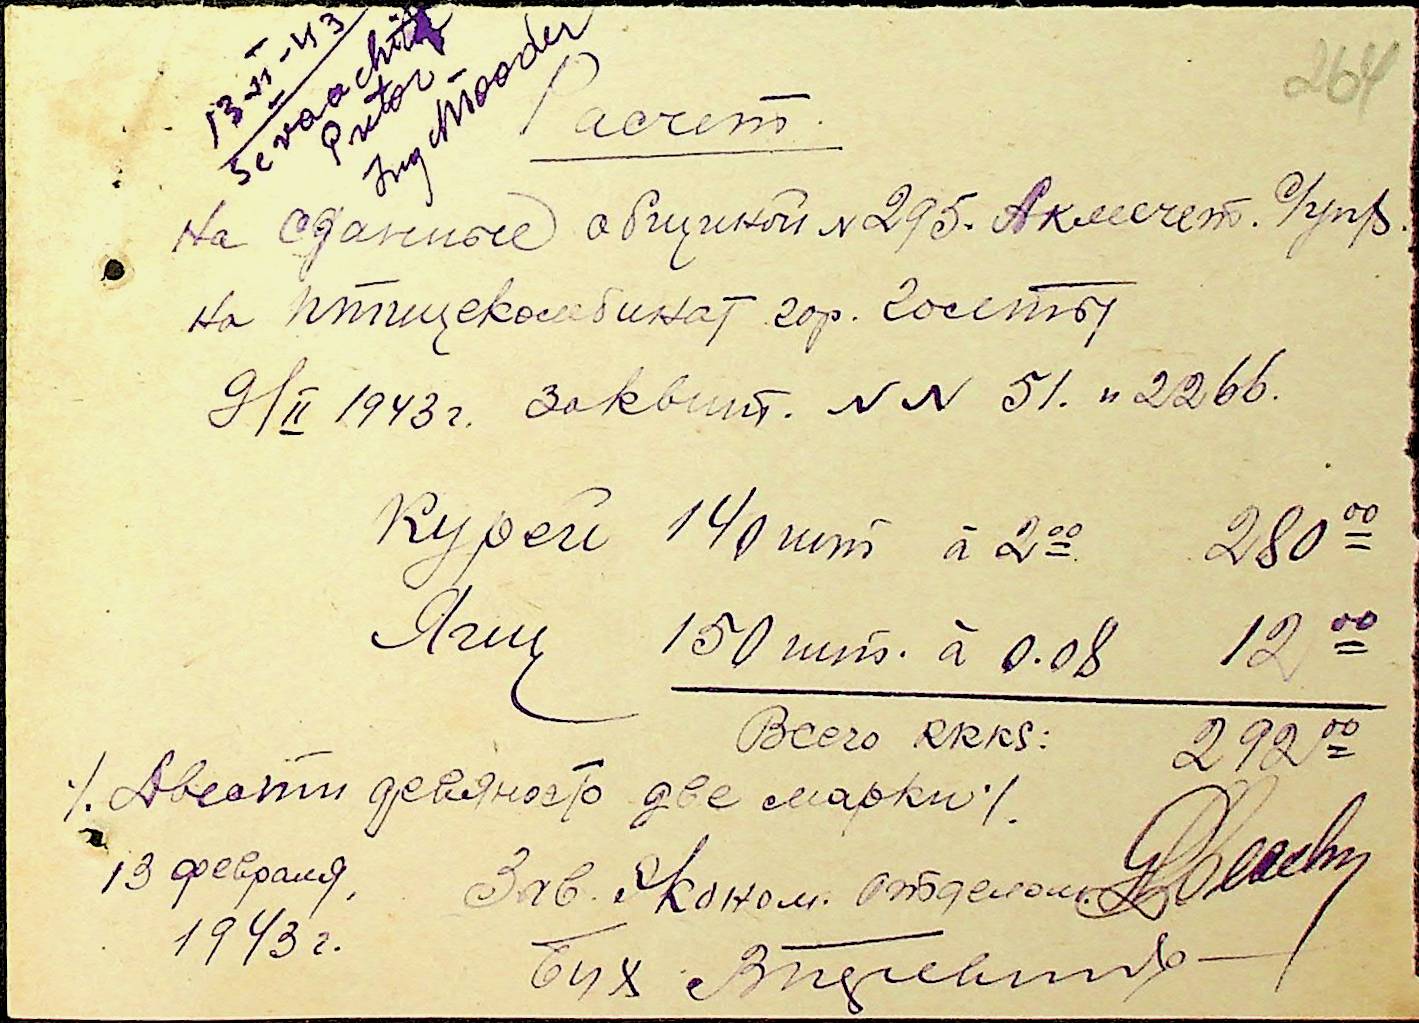 13-II-43
Se va achita
Pretor
Ing
264
Расчет.
на сданные общиной N 295. Акмечет. р/упр.
на птицекомбинат гор. Голты
9/II 1943 г. за квит. N N 51. и 2266.
Курей 140 шт à 2 00 280 00
Яиц 150 шт. à 0.08 12 00
Всего RKKS: 292 00
./. Двести девяносто две марки ./.
13 февраля, Зав. Эконом. отделом
1943 г.
Бух